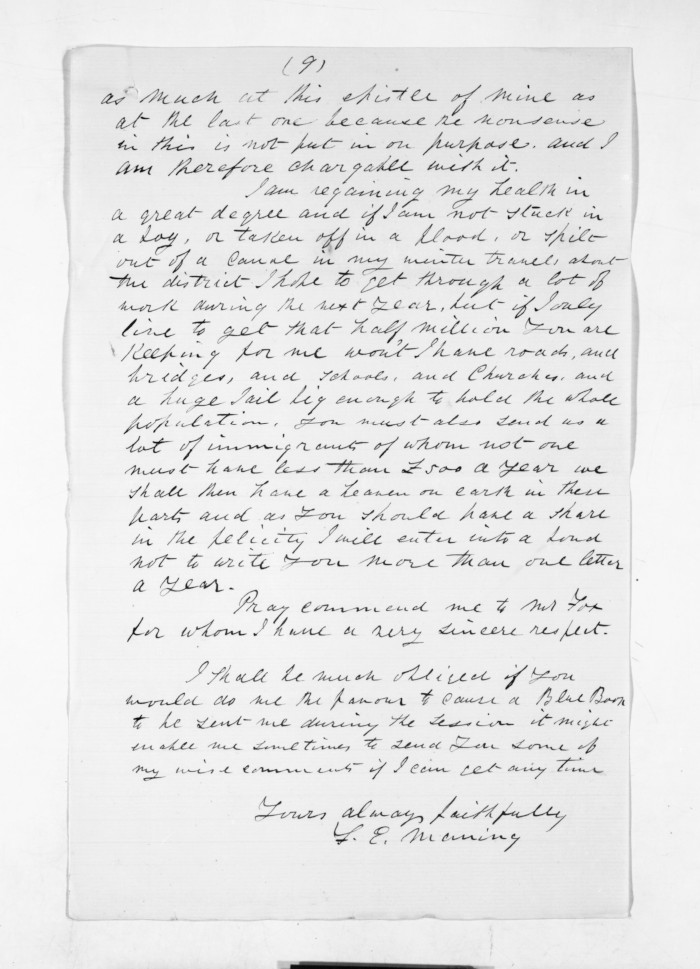 (9)
as much at this epistle of mine as
at the last one because ye nonsense
in this is not put in on purpose. and I
am therefore chargable with it.
I am regaining my health in
a great degree and if I am not stuck in
a bog, or taken off in a flood, or spilt
out of a canoe in my winter travels about
the district I hope to get through a lot of
work during the next year, but if I only
live to get that half million you are
keeping for me won't I have roads, and
bridges, and schools, and Churches, and
a huge Jail big enough to hold the whole
population. You must also send us a
lot of immigrants of whom not one
must have less than £500 a year we
shall then have a heaven on earth in these
parts and as you should have a share
in the felicity I will enter into a bond
not to write you more than one letter
a year.
Pray commend me to Mr Fox
for whom I have a very sincere respect.
I shall be much obliged if you
would do me the favour to cause a Blue Book
to be sent me during the session it might
enable me sometimes to send you some of
my wise comments if I can get any time
Yours always faithfully
F. E. Maning